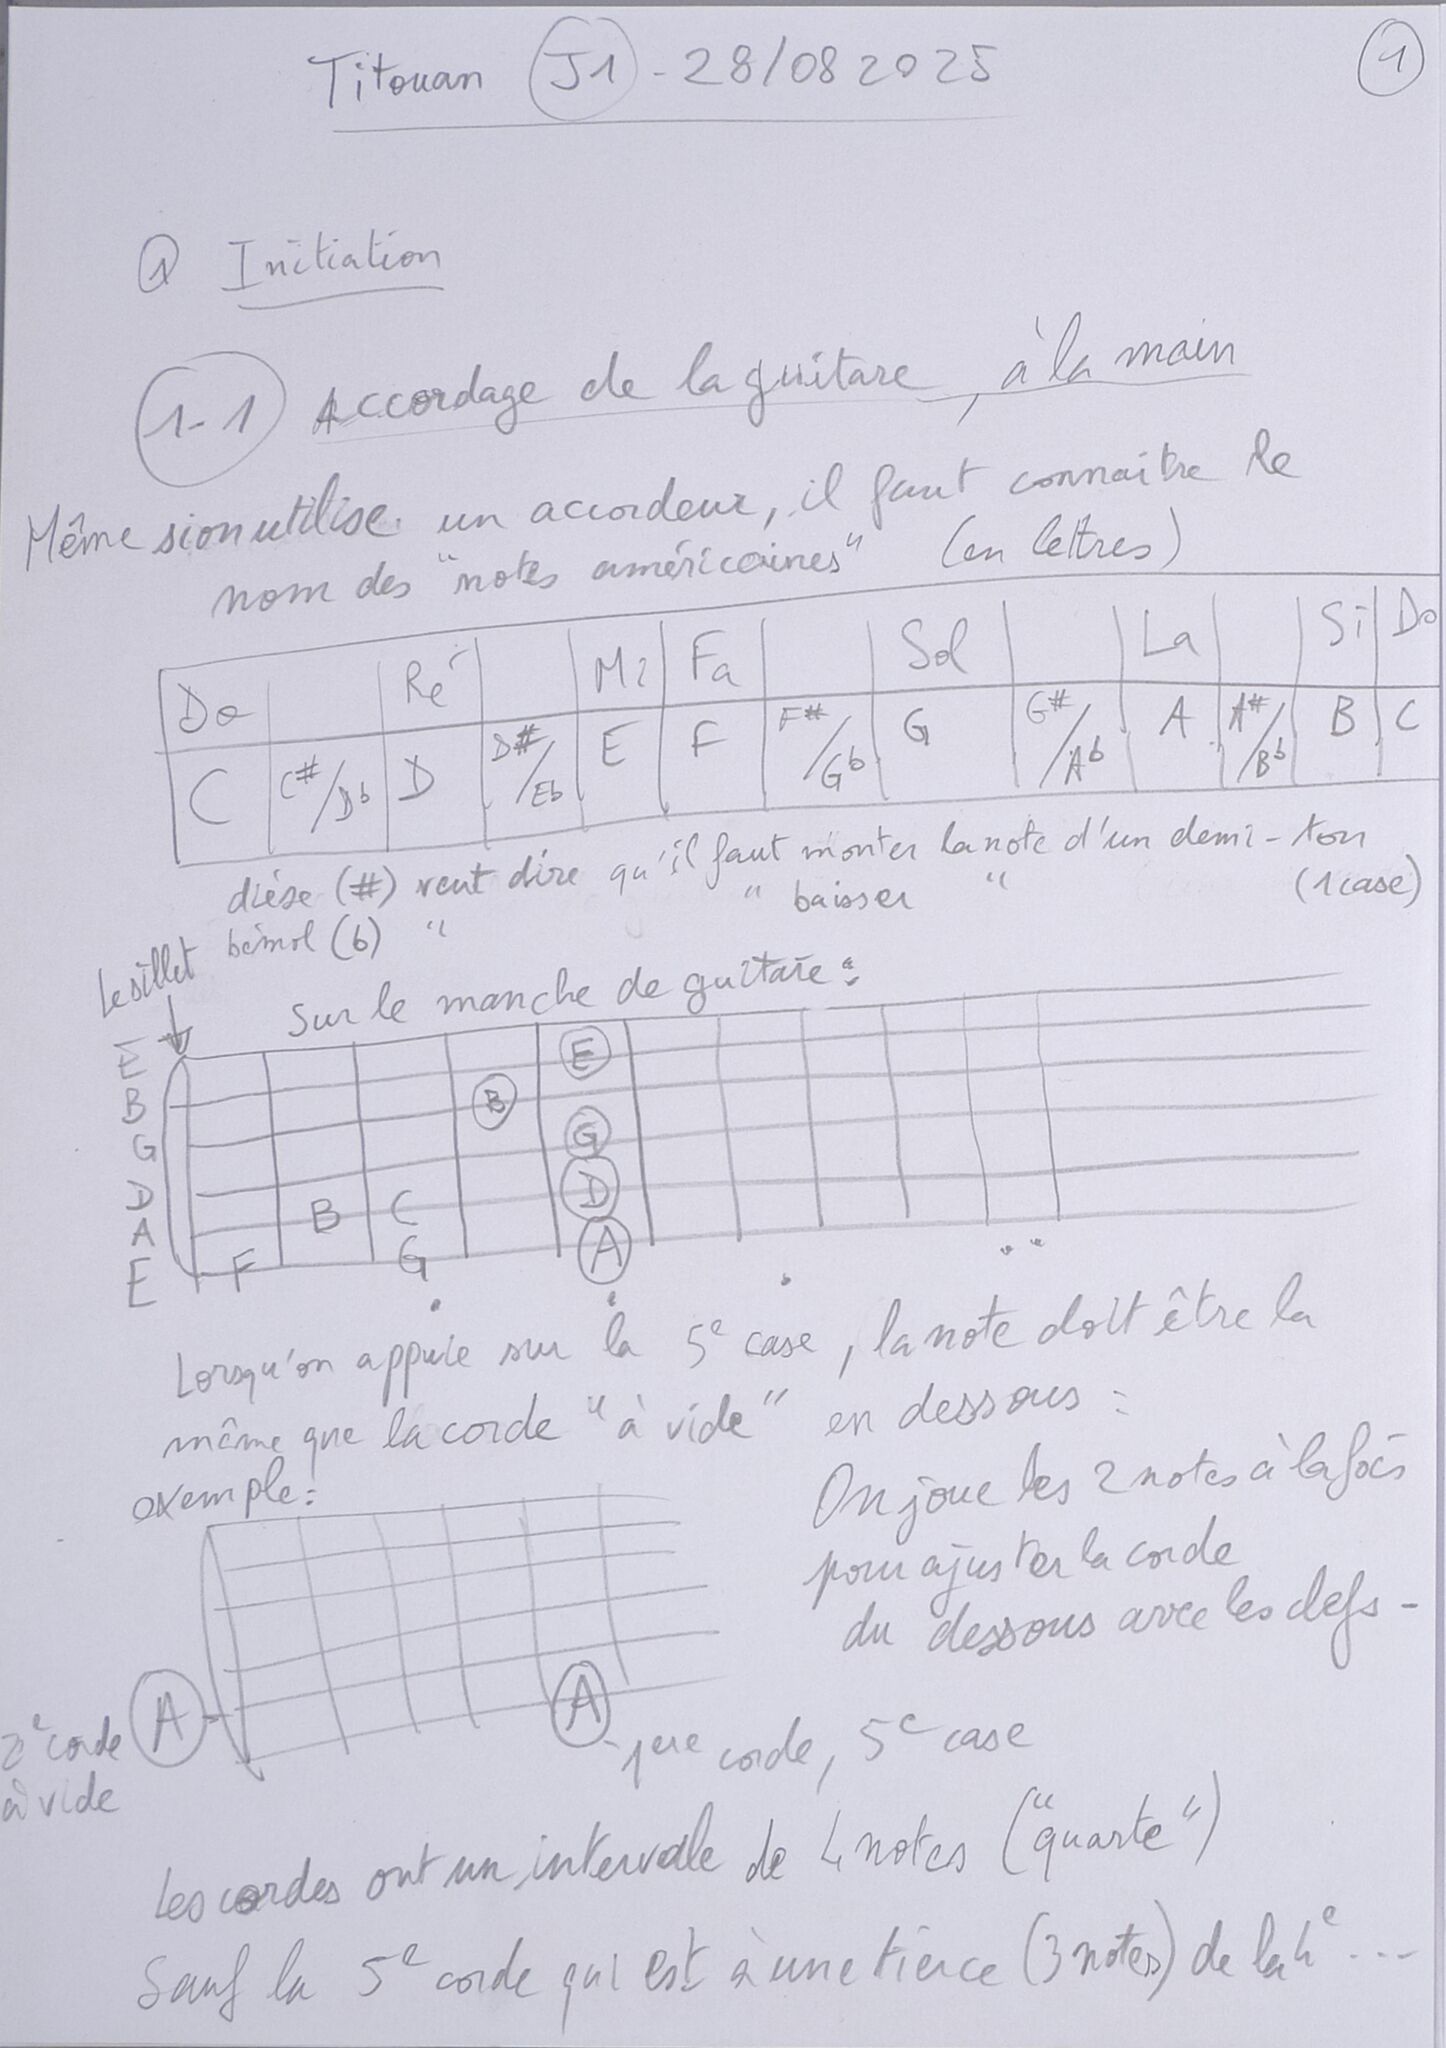 Titouan J1 - 28/08 2025
1
1 Initiation
1-1 Accordage de la guitare, à la main
Même si on utilise un accordeur, il faut connaitre le
nom des "notes américaines" (en lettres)
Do Ré Mi Fa Sol La Si Do
C C#/Db D D#/Eb E F F#/Gb G G#/Ab A A#/Bb B C
dièse (#) veut dire qu'il faut monter la note d'un demi-ton
bémol (b) " " baisser " (1 case)
Le sillet
Sur le manche de guitare :
E E
B B
G G
D D
A B C
E F G A
Lorsqu'on appuie sur la 5e case, la note doit être la
même que la corde "à vide" en dessous :
exemple :
On joue les 2 notes à la fois
pour ajuster la corde
du dessous avec les clefs -
2e corde
à vide
A A
1ere corde, 5e case
Les cordes ont un intervalle de 4 notes ("quarte")
Sauf la 5e corde qui est à une tierce (3 notes) de la 4e ...